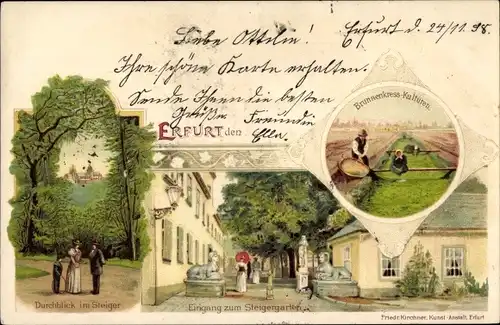 Liebe Ottilie!
Erfurt d. 24/11. 98.
Ihre schöne Karte erhalten.
Sende Ihnen die besten
Grüße Freundin
Ella.
ERFURT den
Brunnenkress-Kulturen.
Durchblick im Steiger
Eingang zum Steigergarten
Friedr. Kirchner, Kunst-Anstalt, Erfurt